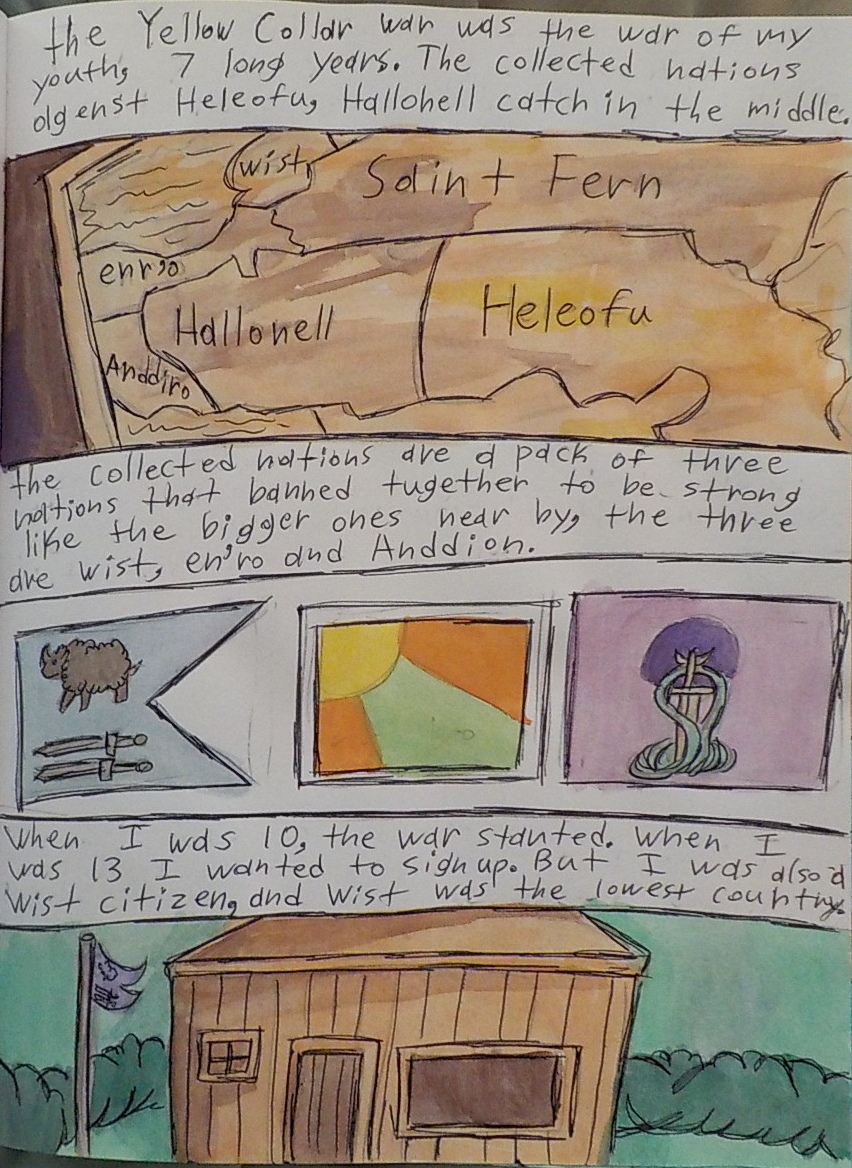 the Yellow Collar war was the war of my
youth, 7 long years. The collected nations
agenst Heleofu, Hallohell catch in the middle.
wist
Saint Fern
enr'o
Hallonell
Heleofu
Anddiro
the collected nations are a pack of three
nations that banned tugether to be strong
like the bigger ones near by, the three
are wist, en'ro and Anddion.
When I was 10, the war stanted. when I
was 13 I wanted to sign up. But I was also a
Wist citizen, and Wist was the lowest country.